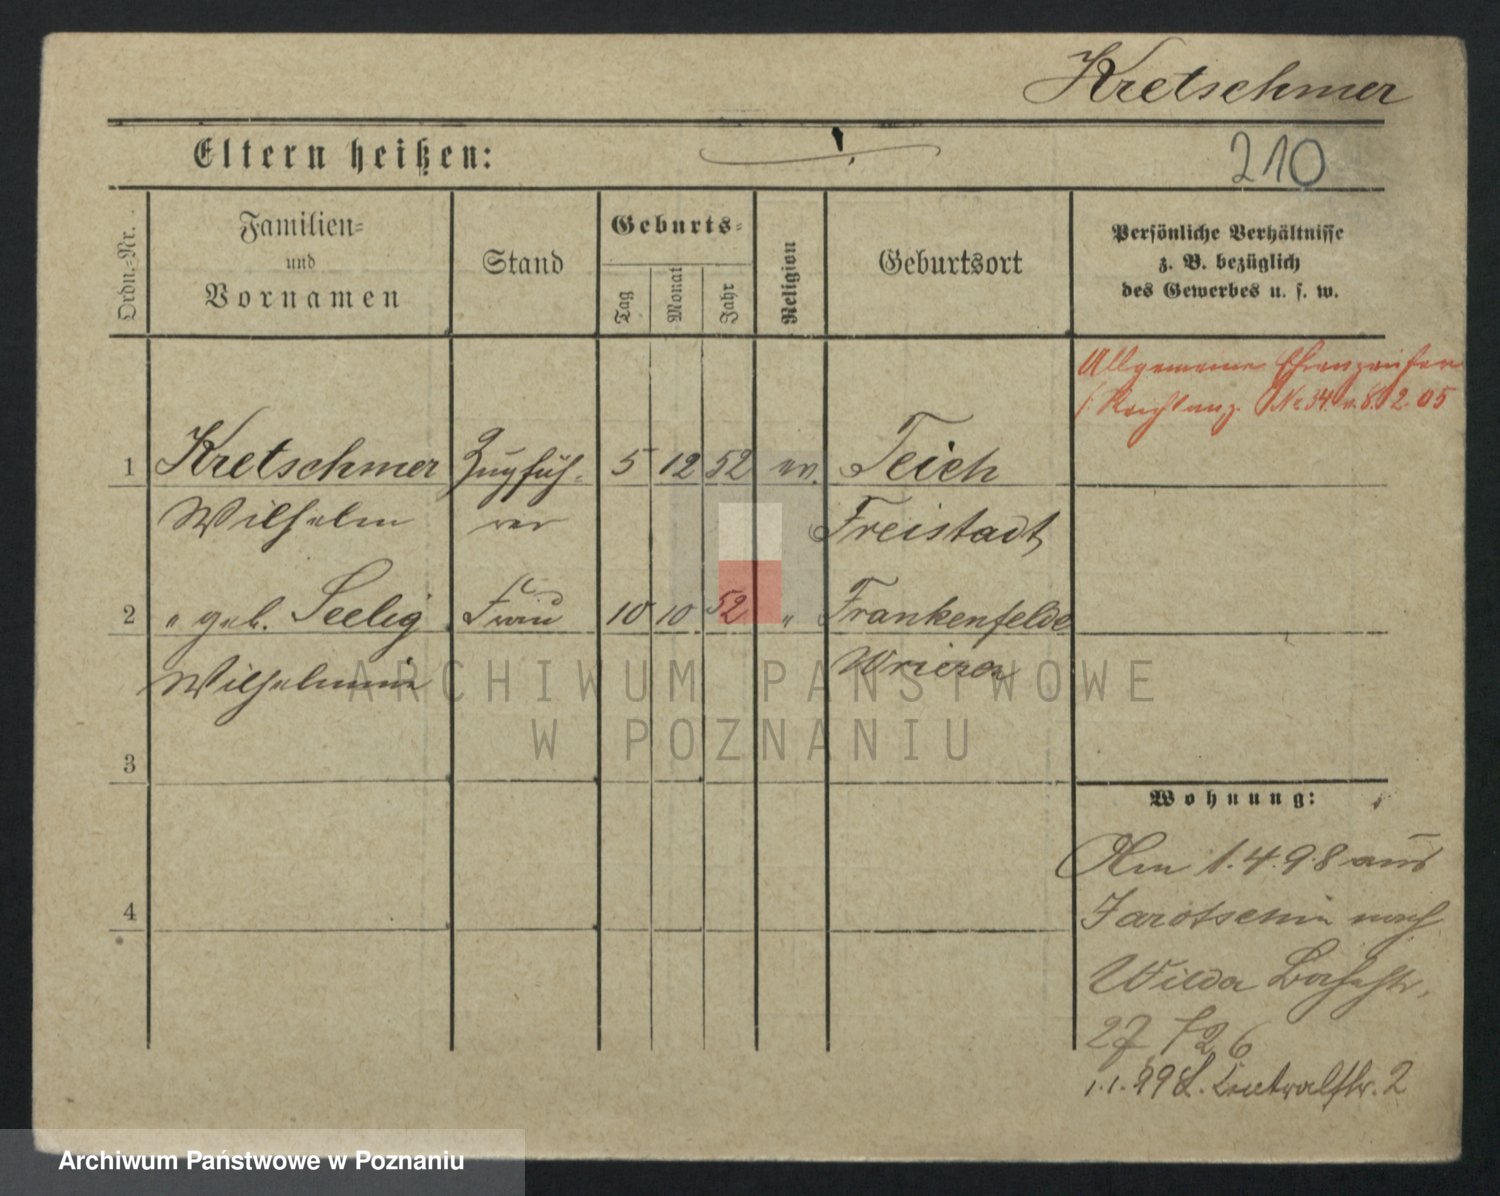 Kretschmer
Eltern heißen:
210
Ordn.-Nr.
Familien-
und
Vornamen
Stand
Geburts-
Tag
Monat
Jahr
Religion
Geburtsort
Persönliche Verhältnisse
z. B. bezüglich
des Gewerbes u. s. w.
Allgemeine Ehrenzeichen
Reichsanz. No 34. v. 8. 2. 05
1 Kretschmer Zugfüh- 5 12 52 ev. Teich
Wilhelm rer Freistadt
2 " geb. Seelig Frau 10 10 52 " Frankenfelde
Wilhelmine Wriezen
3
4
Wohnung:
Am 1.4.98 aus
Jarotschin nach
Wilda
27 726
1.1.99 Centralstr. 2
ARCHIWUM PAŃSTWOWE
W POZNANIU
Archiwum Państwowe w Poznaniu